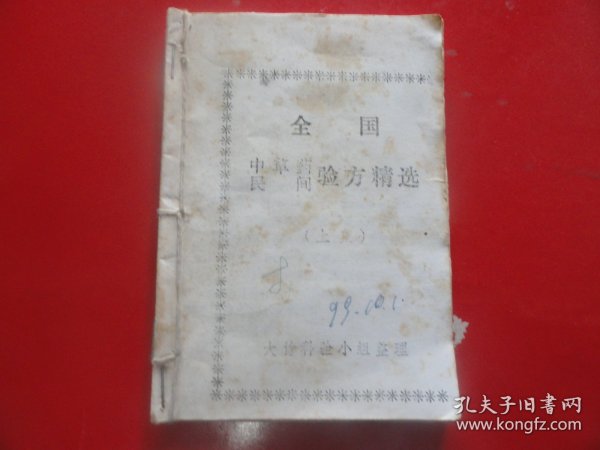 全国
中草药
民间 验方精选
（上）
99.10.1.
小组整理
孔夫子旧书网
www.kongfz.com